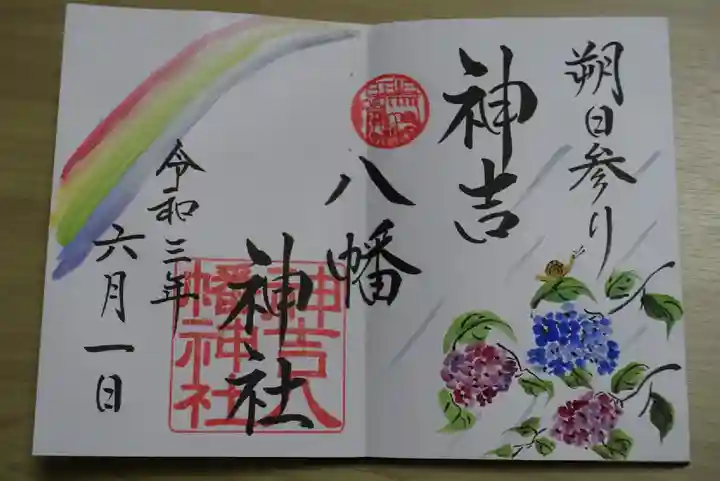 朔日参り
神吉
八幡
神社
神吉八
幡神社
令和三年
六月一日